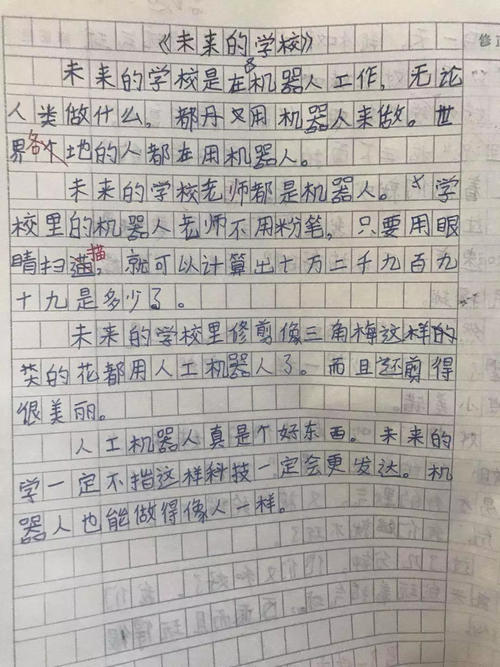 《未来的学校》
未来的学校是在机器人工作，无论
人类做什么，都丹又用机器人来做。世
界各个地的人都在用机器人。
未来的学校老师都是机器人。学
校里的机器人老师不用粉笔，只要用眼
睛扫描，就可以计算出七万二千九百九
十九是多少了。
未来的学校里修剪像三角梅这样的
的花都用人工机器人了。而且还剪得
很美丽。
人工机器人真是个好东西。未来的
学一定不指这样科技一定会更发达。机
器人也能做得像人一样。